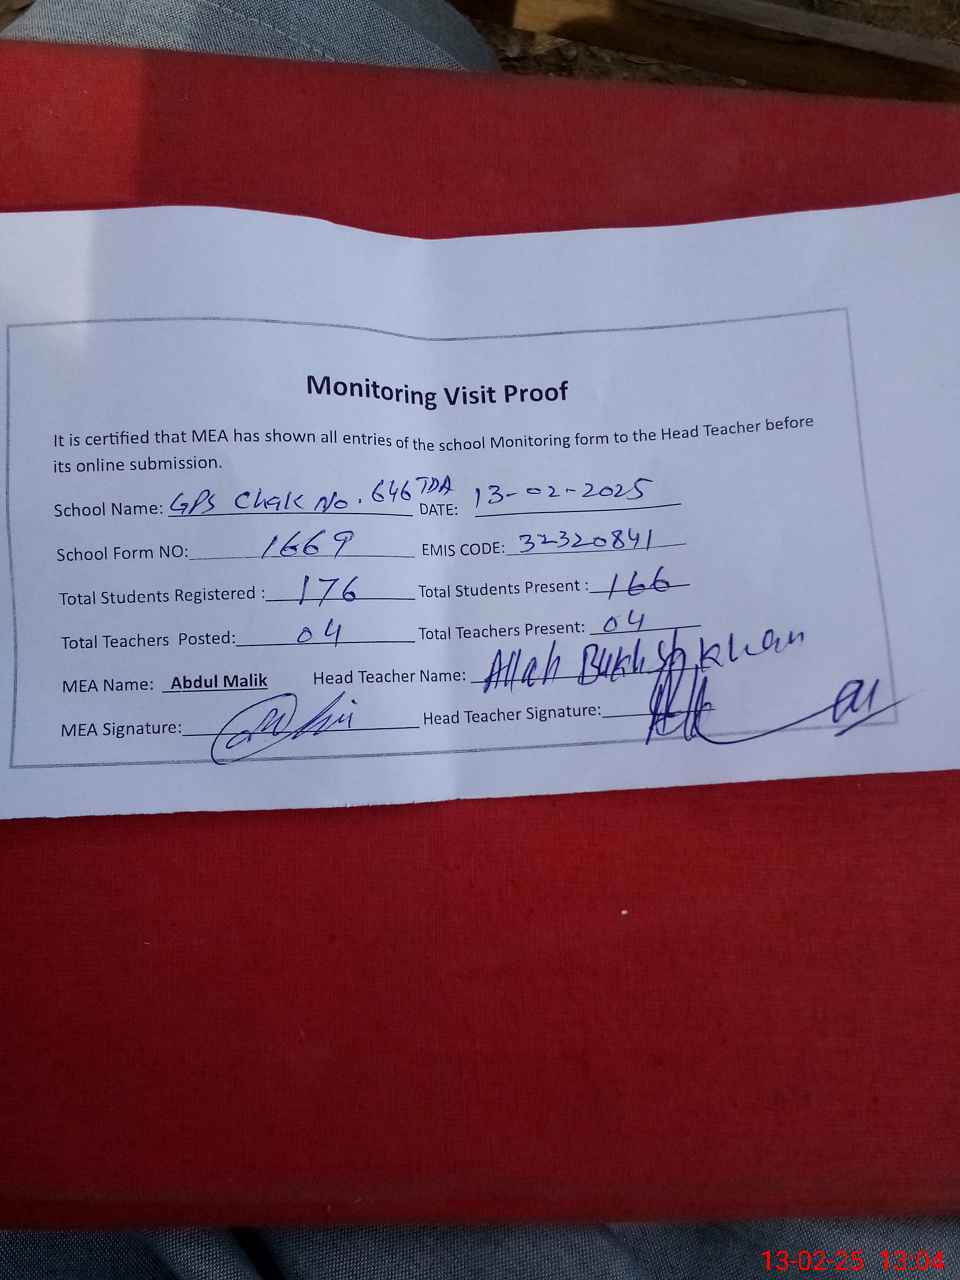 Monitoring Visit Proof
It is certified that MEA has shown all entries of the school Monitoring form to the Head Teacher before
its online submission.
School Name: GPS Chak No. 646 TDA DATE: 13-02-2025
School Form NO: 1669 EMIS CODE: 32320841
Total Students Registered : 176 Total Students Present : 166
Total Teachers Posted: 04 Total Teachers Present: 04
MEA Name: Abdul Malik Head Teacher Name: Allah Bukhsh Khan
MEA Signature: Head Teacher Signature:
13-02-25 13:04